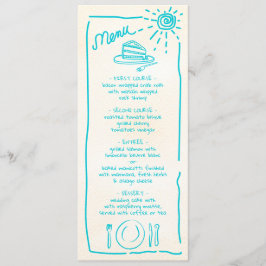 Menu
- FIRST COURSE -
bacon wrapped crab rolls
with wonton wrapped
rock shrimp
- SECOND COURSE -
roasted tomato bisque
grilled cherry
tomatoes vinegar
- ENTREE -
grilled salmon with
limoncello beurre blanc
or
baked manicotti finished
with marinara, fresh herbs
& asiago cheese
- DESSERT -
wedding cake with
with raspberry mousse,
served with coffee or tea